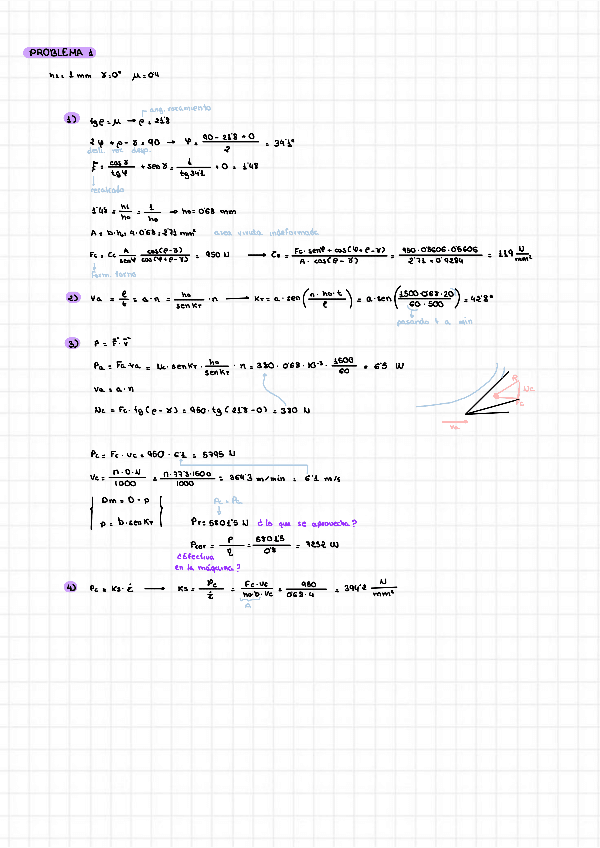 PROBLEMA 1
h1 = 1 mm γ=0° μ=0'4
1) tgρ=μ → ρ = 21'8
ang. rozamiento
2φ+ρ-γ=90 → φ = (90-21'8+0)/2 = 34'1°
ξ = cosγ/tgφ + senγ = 1/tg34'1 + 0 = 1'48
recalcado
1'48 = h1/h0 = 1/h0 → h0 = 0'68 mm
A = b·h0 = 4·0'68 = 2'71 mm² area viruta indeformada
Fc = τc · A/senφ · cos(ρ-γ)/cos(φ+ρ-γ) = 950 N → τc = Fc·senφ·cos(φ+ρ-γ)/(A·cos(ρ-γ)) = 950·0'5606·0'5606/(2'71·0'9284) = 119 N/mm²
2) Va = ℓ/t = a·n = h0/senKr · n → Kr = a·sen(n·h0·t/ℓ) = a·sen(1500·0'68·20/(60·500)) = 42'8°
pasando t a min
3) P = F·V
Pa = Fa·va = Nc·senKr · h0/senKr · n = 380·0'68·10⁻³ · 1500/60 = 6'5 W
Va = a·n
Nc = Fc·tg(ρ-γ) = 950·tg(21'8-0) = 380 N
Nc
Fc
Va
Pc = Fc·vc = 950·6'1 = 5795 W
Vc = π·D·N/1000 = π·77'3·1500/1000 = 364'3 m/min = 6'1 m/s
Dm = D - p
p = b·senKr
Pc + Pa
PT = 5801'5 W ¿lo que se aprovecha?
= P/η = 5801'5/0'8 = 7252 W
efectiva
en la máquina?
4) Pc = Ks·ż → Ks = Pc/ż = Fc·vc/(h0·b·vc) = 950/(0'68·4) = 394'2 N/mm²
A